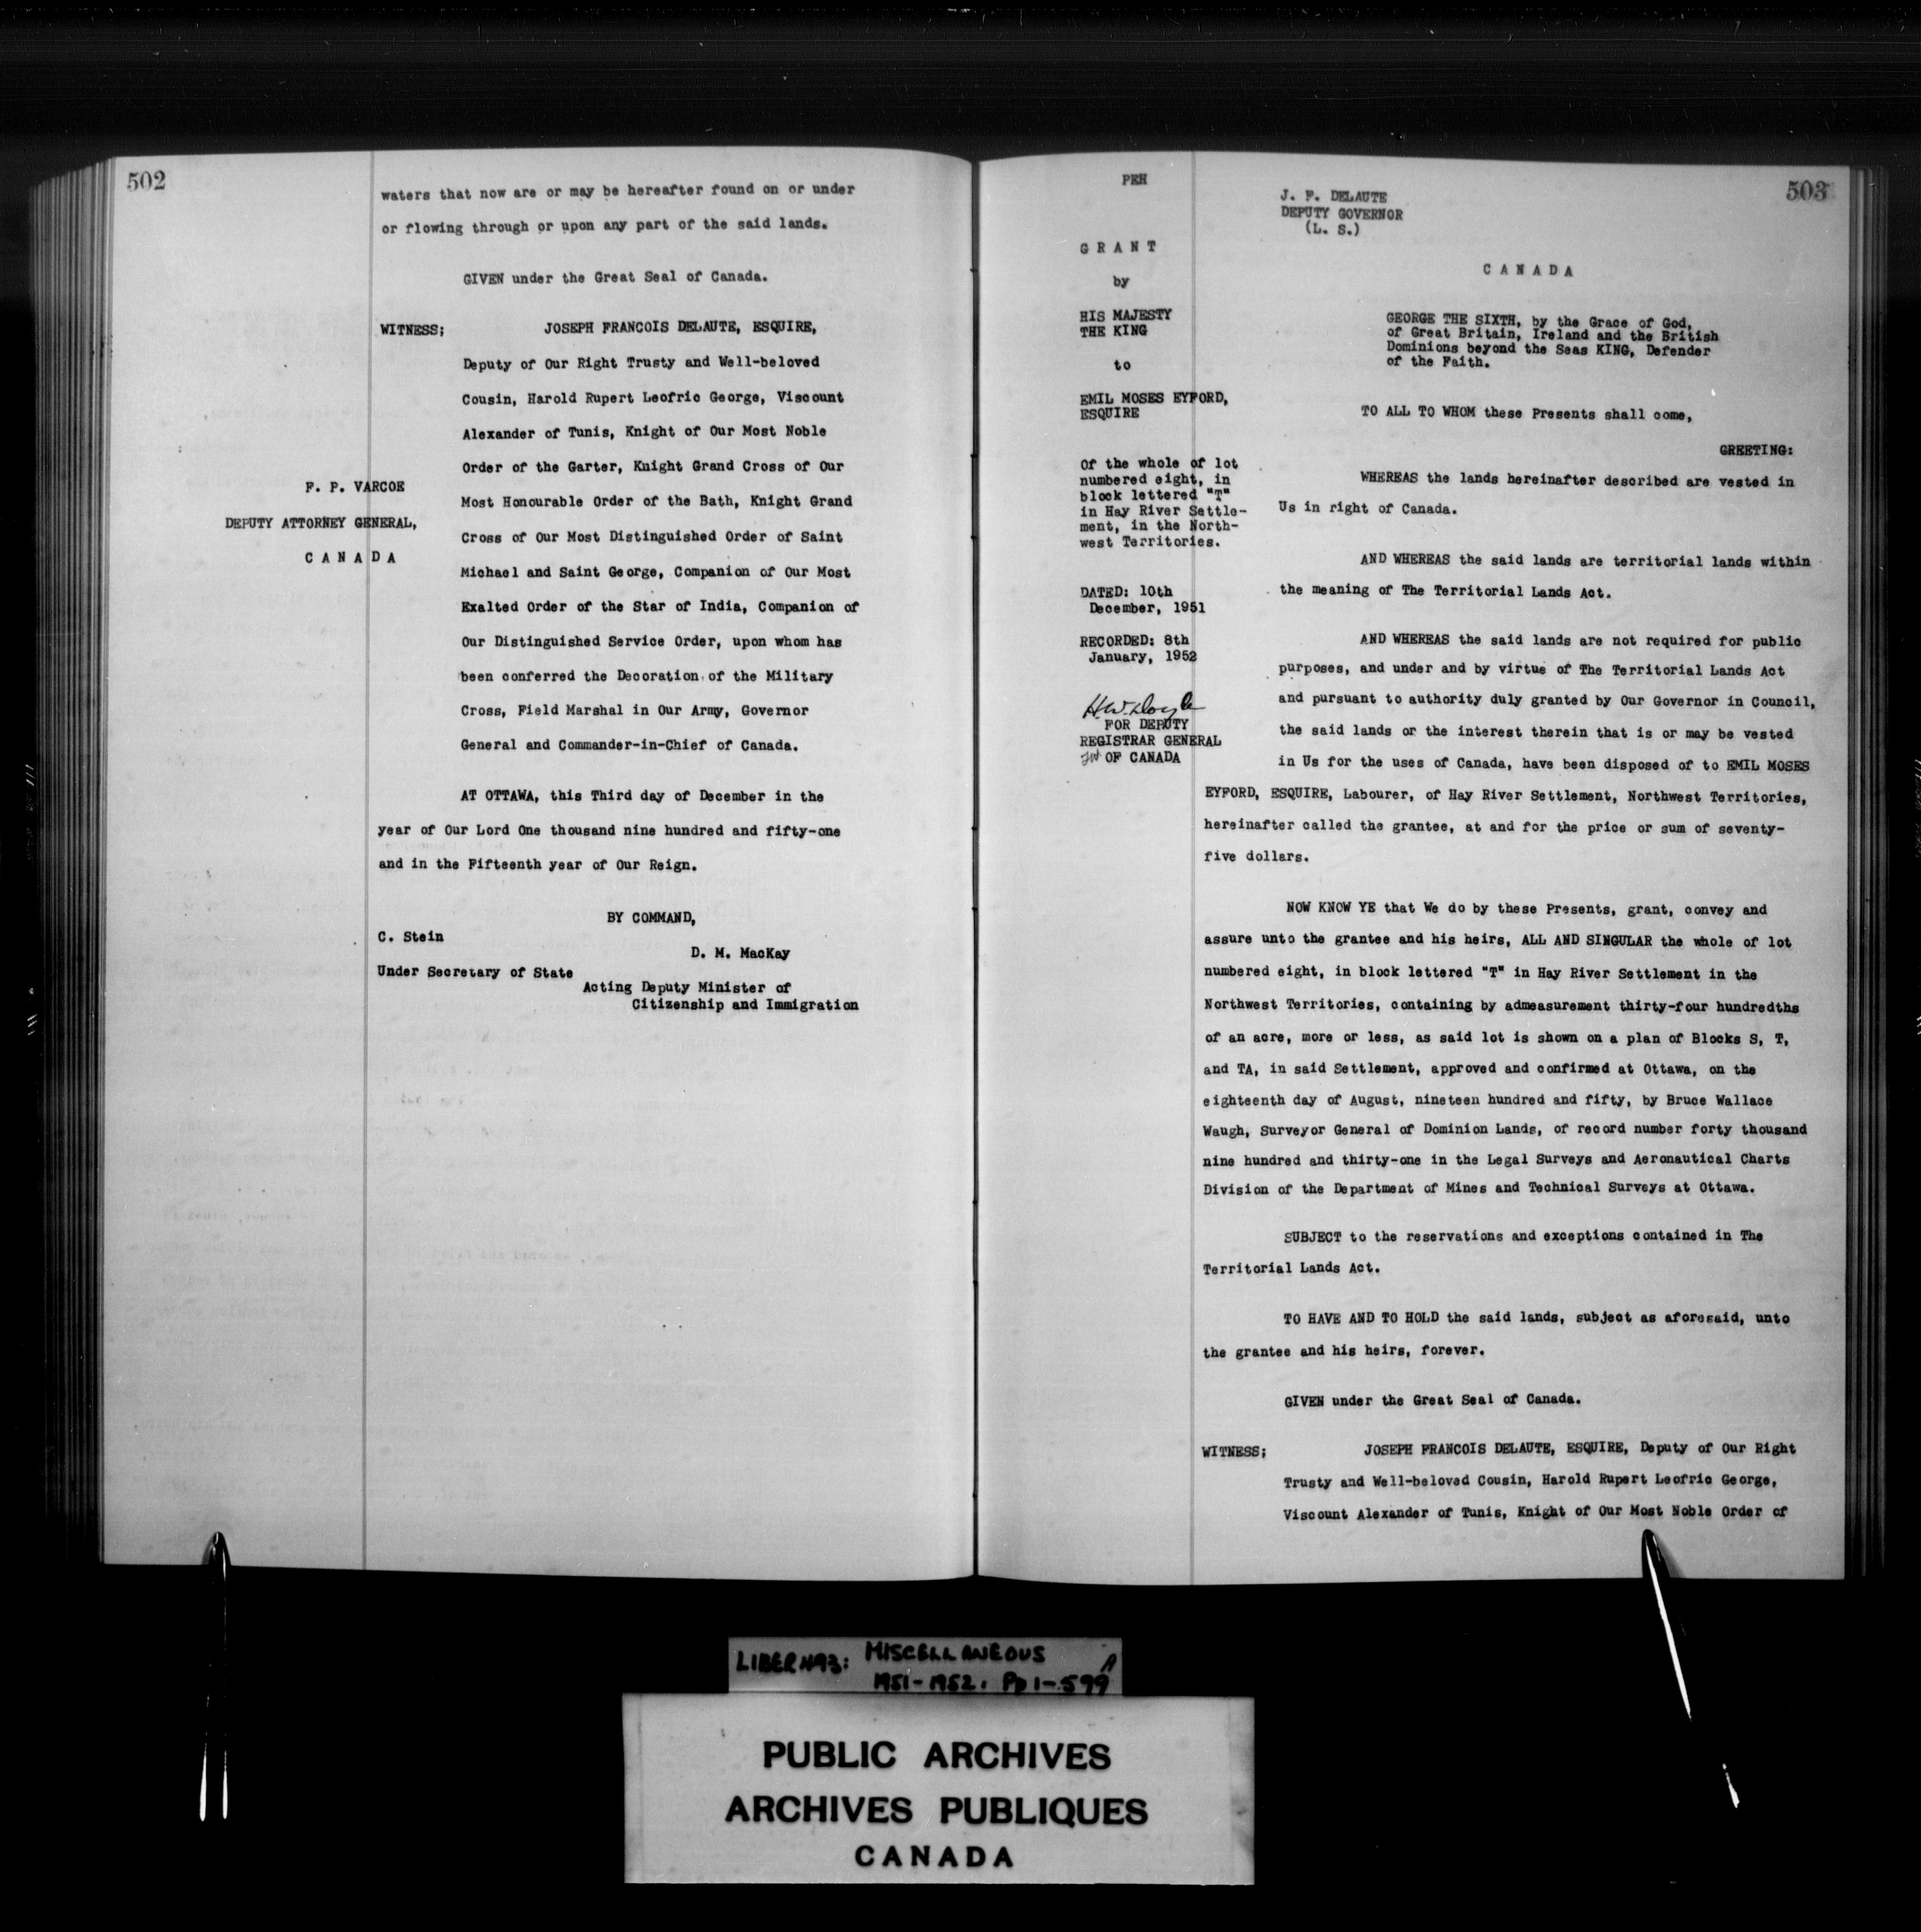 502
waters that now are or may be hereafter found on or under
or flowing through or upon any part of the said lands.
GIVEN under the Great Seal of Canada.
WITNESS; JOSEPH FRANCOIS DELAUTE, ESQUIRE,
Deputy of Our Right Trusty and Well-beloved
Cousin, Harold Rupert Leofric George, Viscount
Alexander of Tunis, Knight of Our Most Noble
Order of the Garter, Knight Grand Cross of Our
Most Honourable Order of the Bath, Knight Grand
Cross of Our Most Distinguished Order of Saint
Michael and Saint George, Companion of Our Most
Exalted Order of the Star of India, Companion of
Our Distinguished Service Order, upon whom has
been conferred the Decoration of the Military
Cross, Field Marshal in Our Army, Governor
General and Commander-in-Chief of Canada.
F. P. VARCOE
DEPUTY ATTORNEY GENERAL,
C A N A D A
AT OTTAWA, this Third day of December in the
year of Our Lord One thousand nine hundred and fifty-one
and in the Fifteenth year of Our Reign.
BY COMMAND,
C. Stein
D. M. MacKay
Under Secretary of State
Acting Deputy Minister of
Citizenship and Immigration
503
PEH
G R A N T
by
HIS MAJESTY
THE KING
to
EMIL MOSES EYFORD,
ESQUIRE
Of the whole of lot
numbered eight, in
block lettered "T"
in Hay River Settle-
ment, in the North-
west Territories.
DATED: 10th
December, 1951
RECORDED: 8th
January, 1952
H.W. Doyle
FOR DEPUTY
REGISTRAR GENERAL
OF CANADA
J. F. DELAUTE
DEPUTY GOVERNOR
(L. S.)
C A N A D A
GEORGE THE SIXTH, by the Grace of God,
of Great Britain, Ireland and the British
Dominions beyond the Seas KING, Defender
of the Faith.
TO ALL TO WHOM these Presents shall come,
GREETING:
WHEREAS the lands hereinafter described are vested in
Us in right of Canada.
AND WHEREAS the said lands are territorial lands within
the meaning of The Territorial Lands Act.
AND WHEREAS the said lands are not required for public
purposes, and under and by virtue of The Territorial Lands Act
and pursuant to authority duly granted by Our Governor in Council,
the said lands or the interest therein that is or may be vested
in Us for the uses of Canada, have been disposed of to EMIL MOSES
EYFORD, ESQUIRE, Labourer, of Hay River Settlement, Northwest Territories,
hereinafter called the grantee, at and for the price or sum of seventy-
five dollars.
NOW KNOW YE that We do by these Presents, grant, convey and
assure unto the grantee and his heirs, ALL AND SINGULAR the whole of lot
numbered eight, in block lettered "T" in Hay River Settlement in the
Northwest Territories, containing by admeasurement thirty-four hundredths
of an acre, more or less, as said lot is shown on a plan of Blocks S, T,
and TA, in said Settlement, approved and confirmed at Ottawa, on the
eighteenth day of August, nineteen hundred and fifty, by Bruce Wallace
Waugh, Surveyor General of Dominion Lands, of record number forty thousand
nine hundred and thirty-one in the Legal Surveys and Aeronautical Charts
Division of the Department of Mines and Technical Surveys at Ottawa.
SUBJECT to the reservations and exceptions contained in The
Territorial Lands Act.
TO HAVE AND TO HOLD the said lands, subject as aforesaid, unto
the grantee and his heirs, forever.
GIVEN under the Great Seal of Canada.
WITNESS; JOSEPH FRANCOIS DELAUTE, ESQUIRE, Deputy of Our Right
Trusty and Well-beloved Cousin, Harold Rupert Leofric George,
Viscount Alexander of Tunis, Knight of Our Most Noble Order of
LIBER 493: MISCELLANEOUS A
1951-1952. Pp 1-599
PUBLIC ARCHIVES
ARCHIVES PUBLIQUES
CANADA